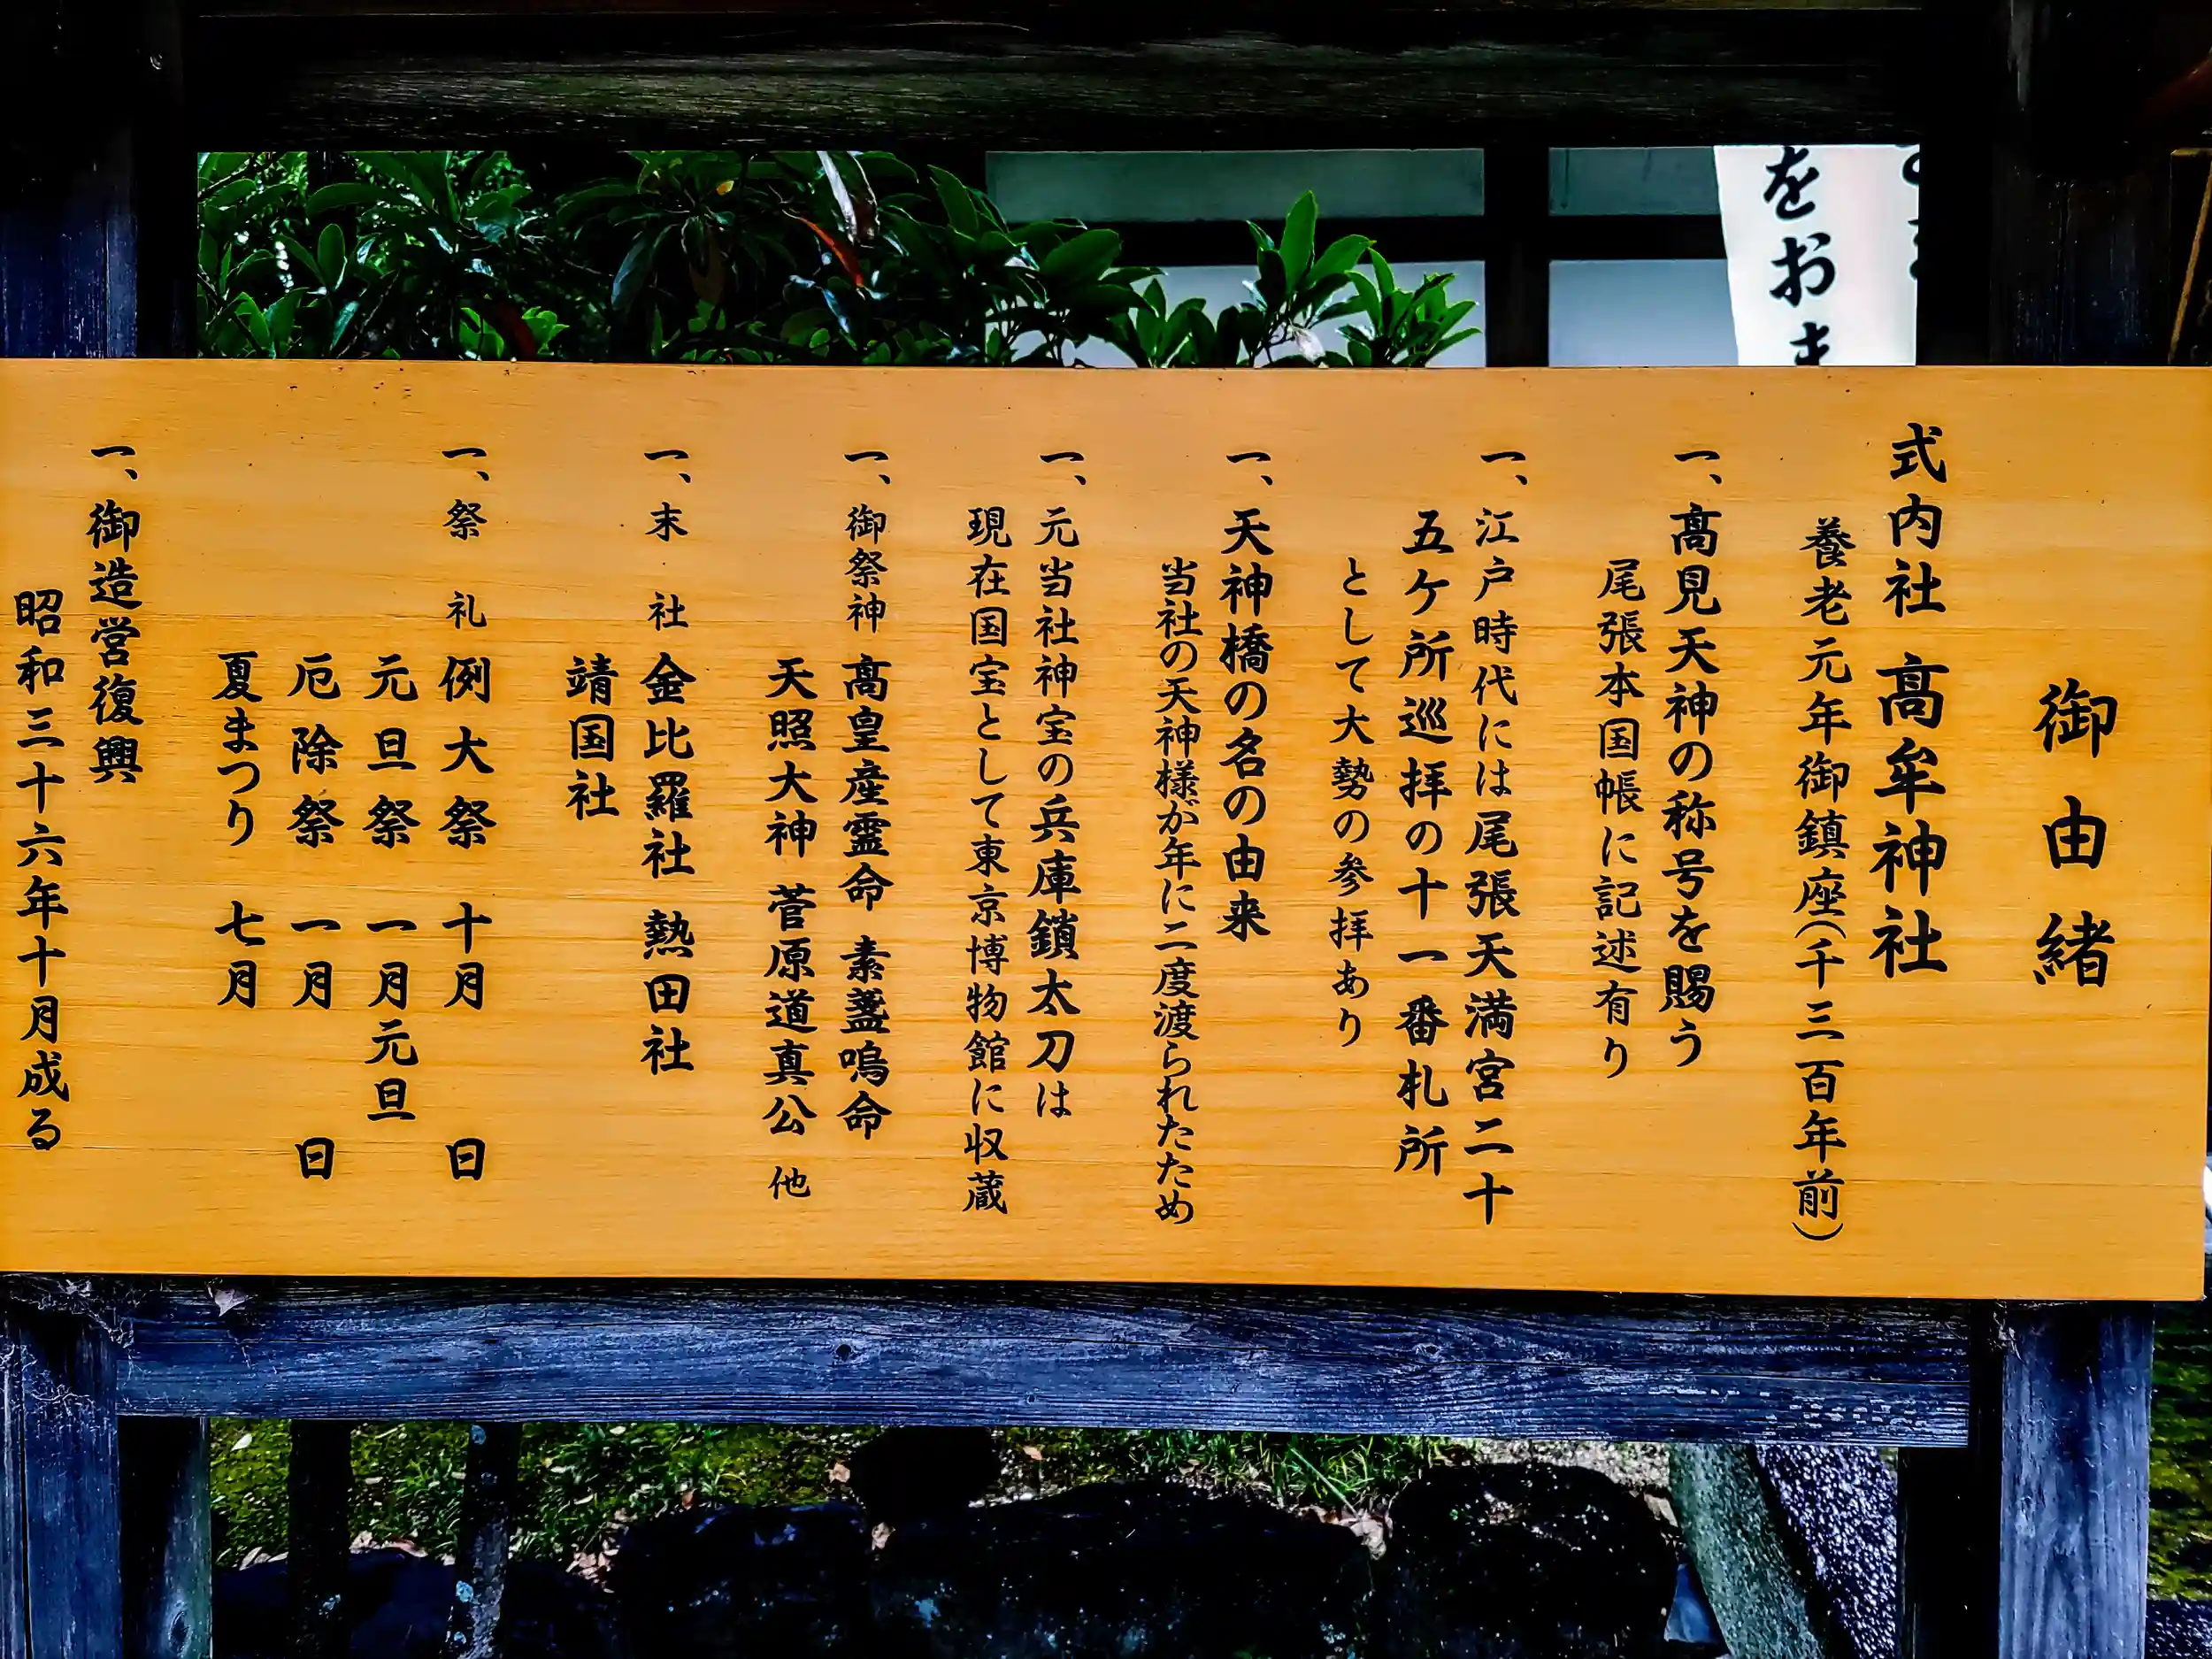 御由緒
式内社 髙牟神社
養老元年御鎮座(千三百年前)
一、髙見天神の称号を賜う
尾張本国帳に記述有り
一、江戸時代には尾張天満宮二十
五ケ所巡拝の十一番札所
として大勢の参拝あり
一、天神橋の名の由来
当社の天神様が年に二度渡られたため
一、元当社神宝の兵庫鎖太刀は
現在国宝として東京博物館に収蔵
一、御祭神 髙皇産霊命 素盞嗚命
天照大神 菅原道真公 他
一、末社 金比羅社 熱田社
靖国社
一、祭礼 例大祭 十月 日
元旦祭 一月元旦
厄除祭 一月 日
夏まつり 七月
一、御造営復興
昭和三十六年十月成る
をおま